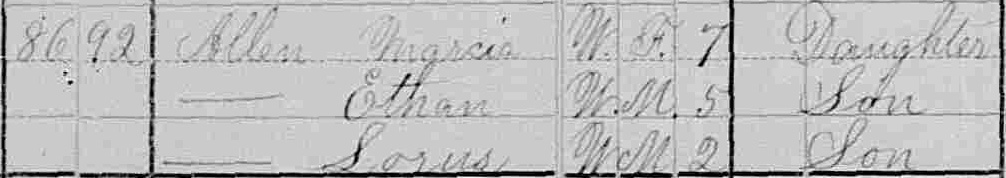 86 92 Allen Marcia W. F. 7 Daughter
—— Ethan W. M. 5 Son
—— Lorus W M 2 Son